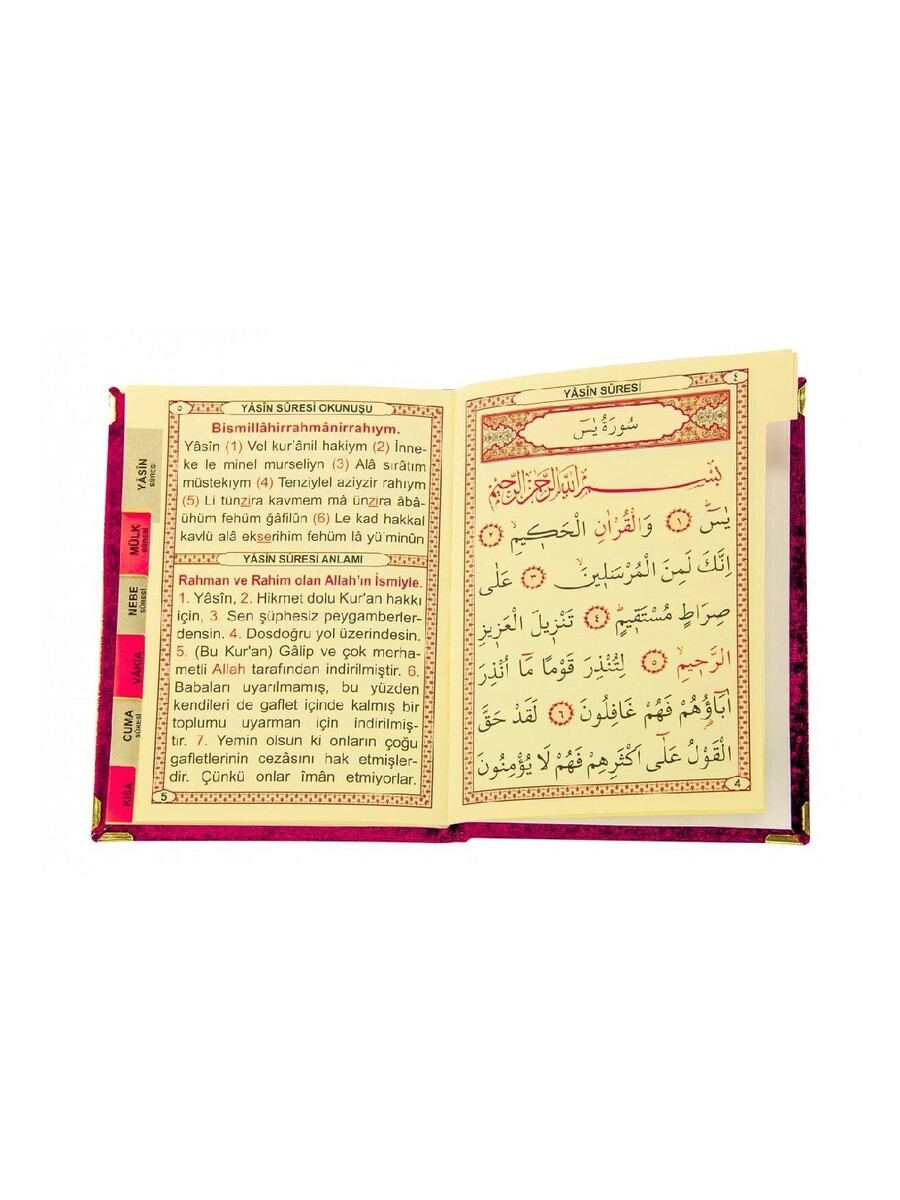 YÂSİN SÛRESİ
٤
سُورَةُ يٰسٓ
بِسْــــــمِ اللّٰهِ الرَّحْمٰنِ الرَّحِيمِ
يٰسٓ ﴿١﴾ وَالْقُرْاٰنِ الْحَك۪يمِۙ ﴿٢﴾
اِنَّكَ لَمِنَ الْمُرْسَل۪ينَۙ ﴿٣﴾ عَلٰى
صِرَاطٍ مُسْتَق۪يمٍۜ ﴿٤﴾ تَنْز۪يلَ الْعَز۪يزِ
الرَّح۪يمِۙ ﴿٥﴾ لِتُنْذِرَ قَوْمًا مَٓا اُنْذِرَ
اٰبَٓاؤُ۬هُمْ فَهُمْ غَافِلُونَ ﴿٦﴾ لَقَدْ حَقَّ
الْقَوْلُ عَلٰٓى اَكْثَرِهِمْ فَهُمْ لَا يُؤْمِنُونَ
4
٥
YÂSİN SÛRESİ OKUNUŞU
Bismillâhirrahmânirrahıym.
Yâsîn (1) Vel kur'ânil hakiym (2) İnne-
ke le minel murseliyn (3) Alâ sırâtım
müstekıym (4) Tenziylel aziyzir rahıym
(5) Li tünzira kavmem mâ ünzira âbâ-
ühüm fehüm ğafilûn (6) Le kad hakkal
kavlü alâ ekserihim fehüm lâ yü'minûn
YÂSİN SÛRESİ ANLAMI
Rahman ve Rahim olan Allah'ın İsmiyle.
1. Yâsîn, 2. Hikmet dolu Kur'an hakkı
için, 3. Sen şüphesiz peygamberler-
densin. 4. Dosdoğru yol üzerindesin.
5. (Bu Kur'an) Gâlip ve çok merha-
metli Allah tarafından indirilmiştir. 6.
Babaları uyarılmamış, bu yüzden
kendileri de gaflet içinde kalmış bir
toplumu uyarman için indirilmiş-
tir. 7. Yemin olsun ki onların çoğu
gafletlerinin cezâsını hak etmişler-
dir. Çünkü onlar îmân etmiyorlar.
5
YÂSİN
SÛRESİ
MÜLK
SÛRESİ
NEBE
SÛRESİ
VÂKIA
CUMA
SÛRESİ
KISA